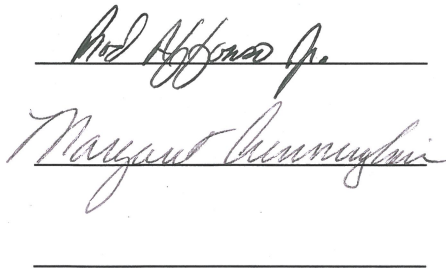 Rod Affonso Jr.
Margaret Cunningham